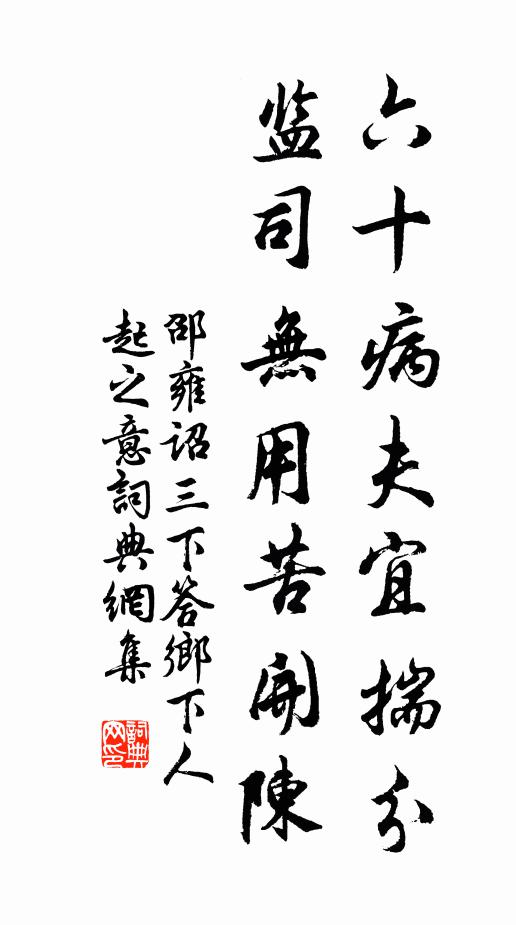 六十病夫宜揣分
监司無用苦開陳
邵雍詔三下答鄉下人
起之意詞典網集
詞典